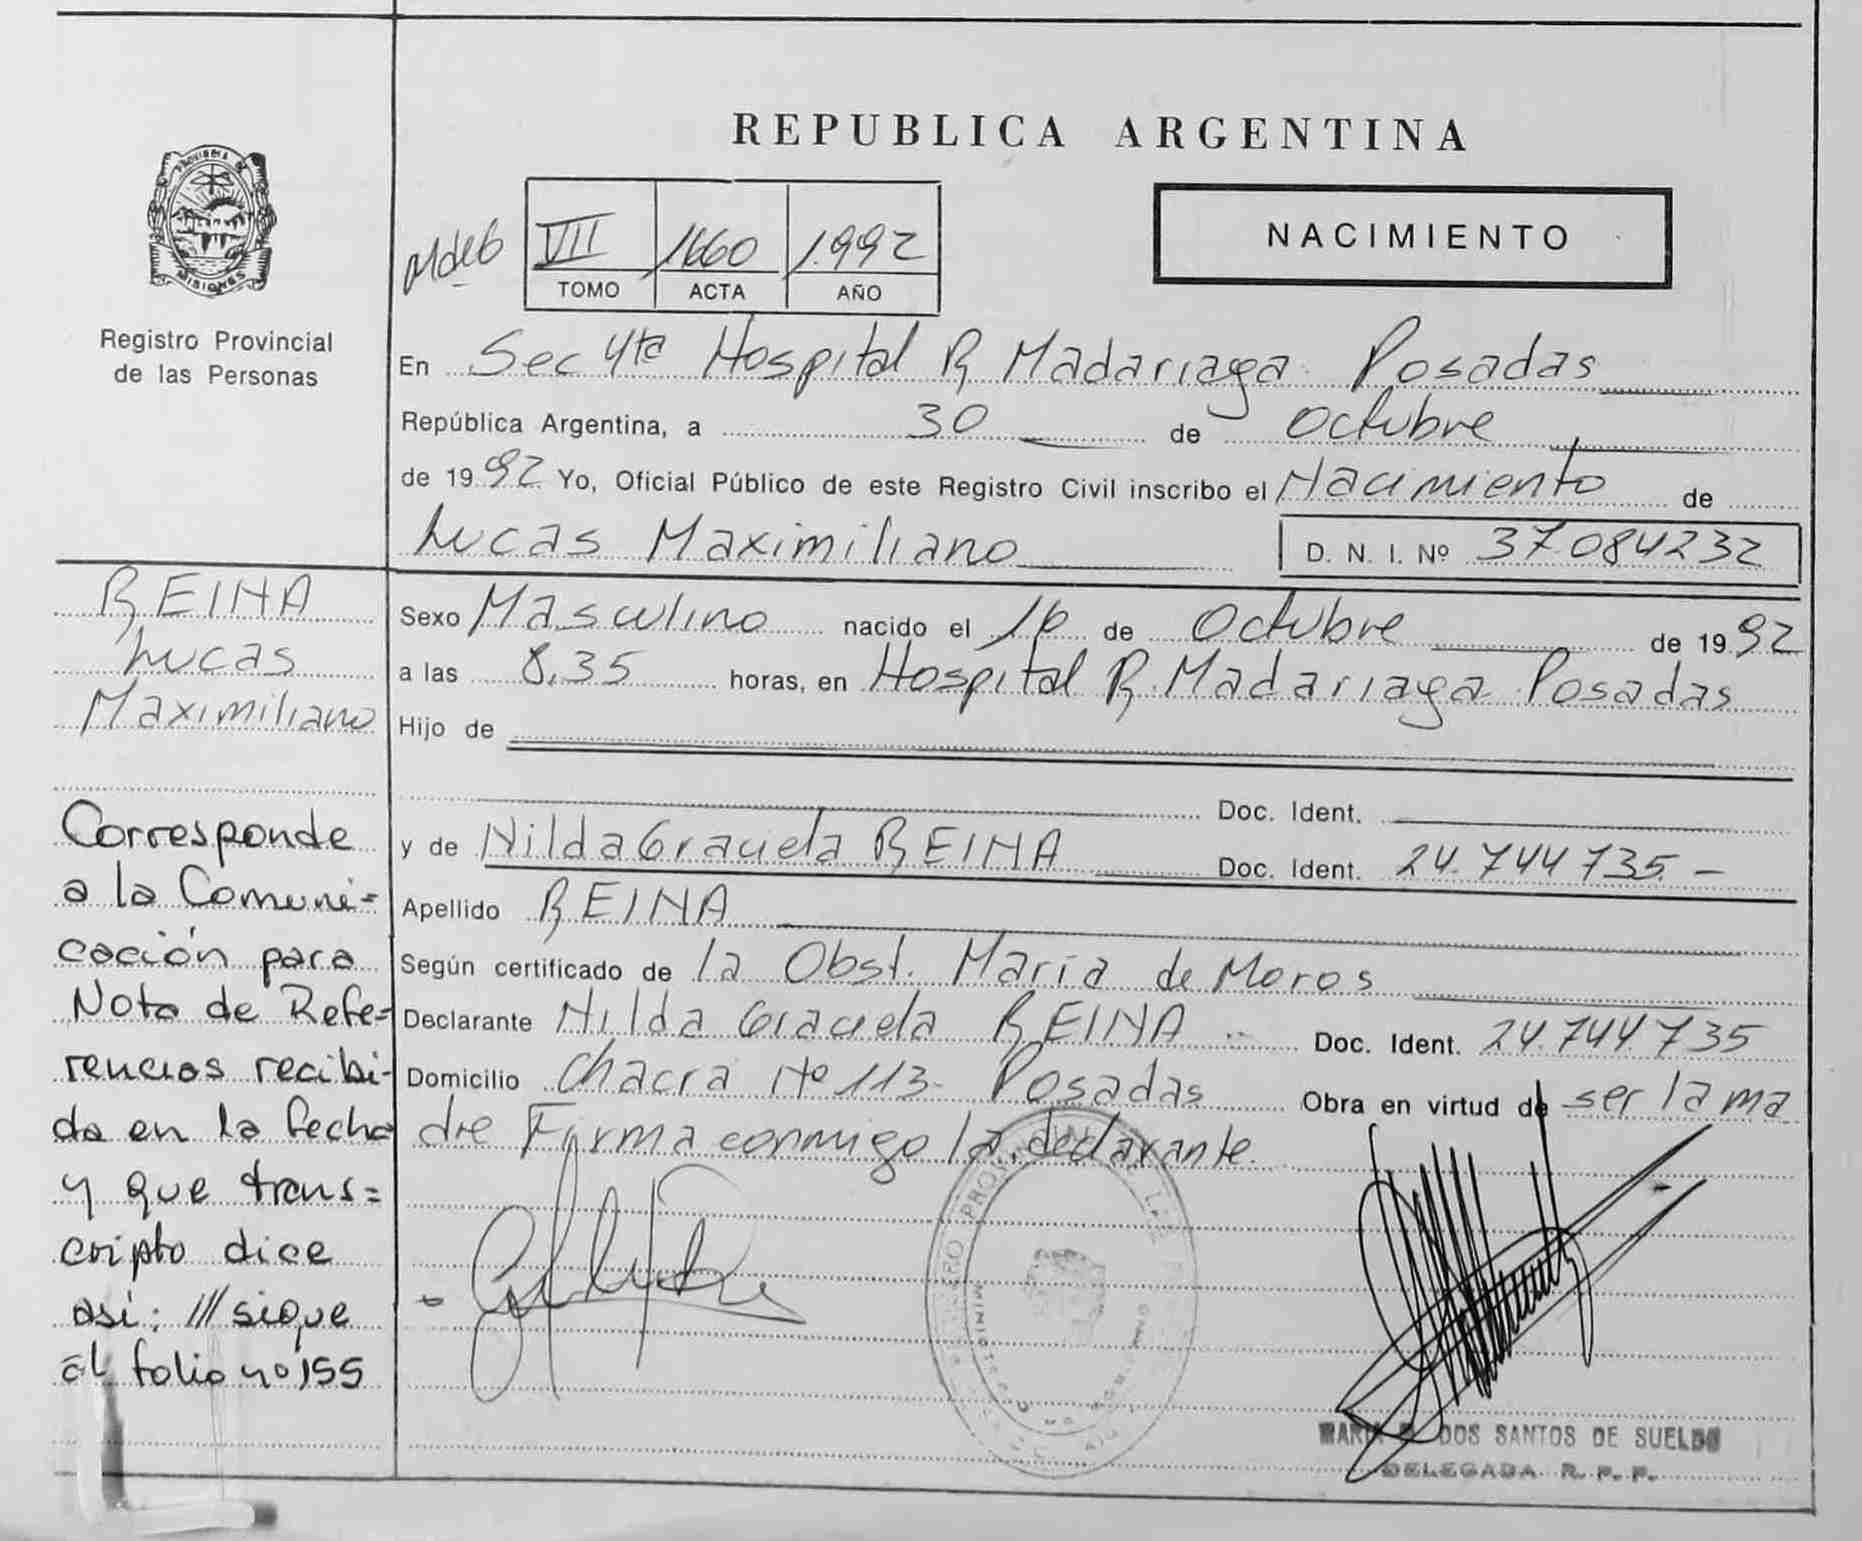 REPUBLICA ARGENTINA
PROVINCIA DE
MISIONES
Registro Provincial
de las Personas
VII 1660 1.992
TOMO ACTA AÑO
NACIMIENTO
En Sec 4ta Hospital R Madariaga Posadas
República Argentina, a 30 de Octubre
de 1992 Yo, Oficial Público de este Registro Civil inscribo el Nacimiento de
Lucas Maximiliano D. N. I. Nº 37.084232
Sexo Masculino nacido el 16 de Octubre de 1992
a las 8.35 horas, en Hospital R. Madariaga Posadas
Hijo de
Doc. Ident.
y de Nilda Graciela REINA Doc. Ident. 24.744735.-
Apellido REINA
Según certificado de la Obst. María de Moros
Declarante Nilda Graciela REINA Doc. Ident. 24.744.735
Domicilio Chacra Nº 113- Posadas Obra en virtud de ser la ma
dre Firma conmigo la declarante
MARIA DOS SANTOS DE SUELDO
DELEGADA R. P. P.
REINA
Lucas
Maximiliano
Corresponde
a la Comuni=
cación para
Nota de Refe=
rencias recibi-
da en la fecha
y que trans=
cripto dice
así: /// sigue
al folio nº 155